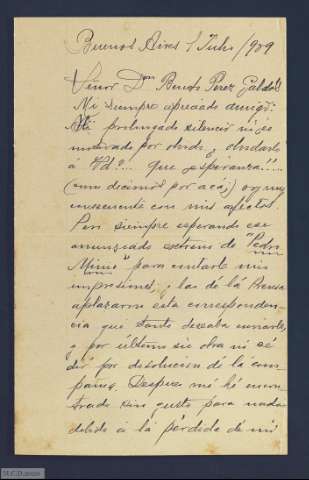 Buenos Aires 1 Julio /909
Señor Dn Benito Perez Galdós
Mi siempre apreciado amigo:
Mi prolongado silencio no es
motivado por olvido, ¿ olvidarlo
á Vd?... que esperanza!!...
(como decimos por acá,) soy muy
consecuente con mis afectos.
Pero siempre esperando ese
anunciado extreno de "Pedro
Minio" para contarle mis
impresiones, y las de la Prensa
aplazaron esta corresponden-
cia que tanto deseaba reanudar,
y por último su obra no se
dió por disolucion de la com-
pañia. Despues me hé encon-
trado sin gusto para nada
debido á la pérdida de mi